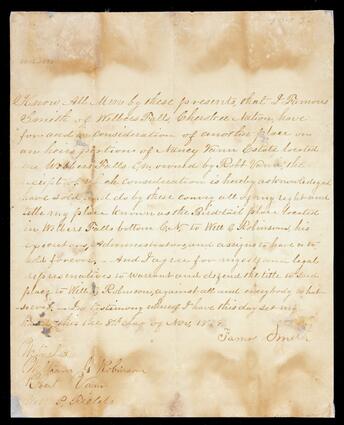 Know All Men by these presents, that I Famous
Smith of Webbers Falls, Cherokee Nation, have
for and in consideration of another place on
an heirs portions of Nancy Vann Estate located
Webbers Falls C.N. owned by Robt Vann, the
which consideration is hereby acknowledged
have sold, and do by these convey all my right and
title my place known as the place located
in Webbers Falls bottom C.N. to Will E Robinson, his
Administrators and assigns to have & to
hold forever. And I agree for myself and legal
representatives to warrant and defend the title to Said
place to Will E Robinson, against all and everybody
In testimony whereof I have this day set my
this the 8th day of Nov
Famous Smith
William Robinson
Robt Vann
Fields